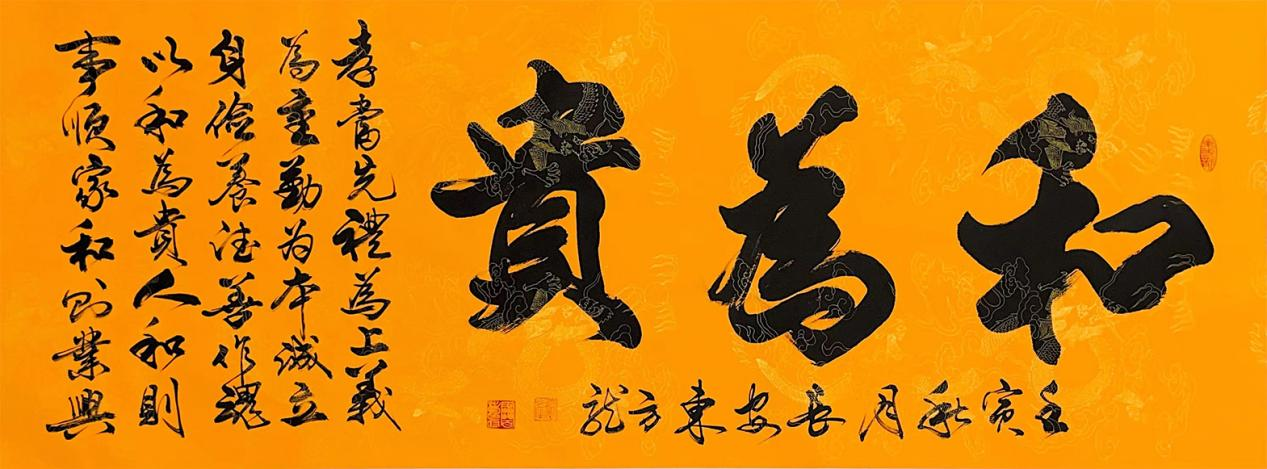 和為貴
孝當先禮為上義
為重勤为本誠立
身儉養德善作魂
以和為貴人和則
事順家和則業興
壬寅秋月長安東方龍